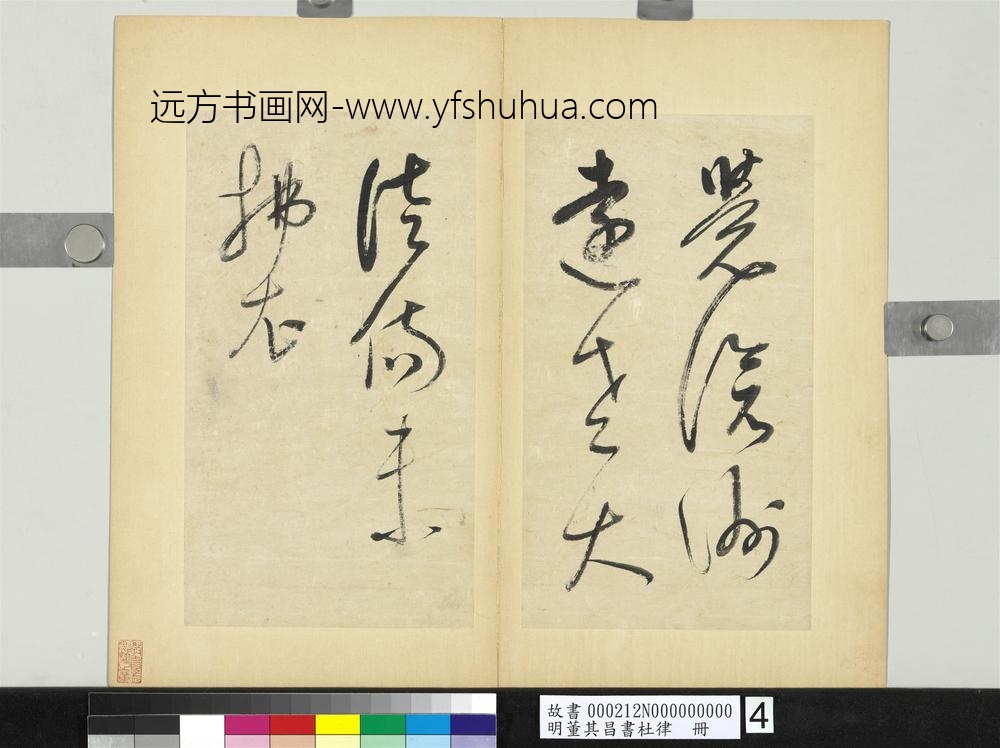 远方书画网-www.yfshuhua.com
覺滄洲
遠老大
徒傷未
拂衣
故書 000212N000000000
明董其昌書杜律 冊
4